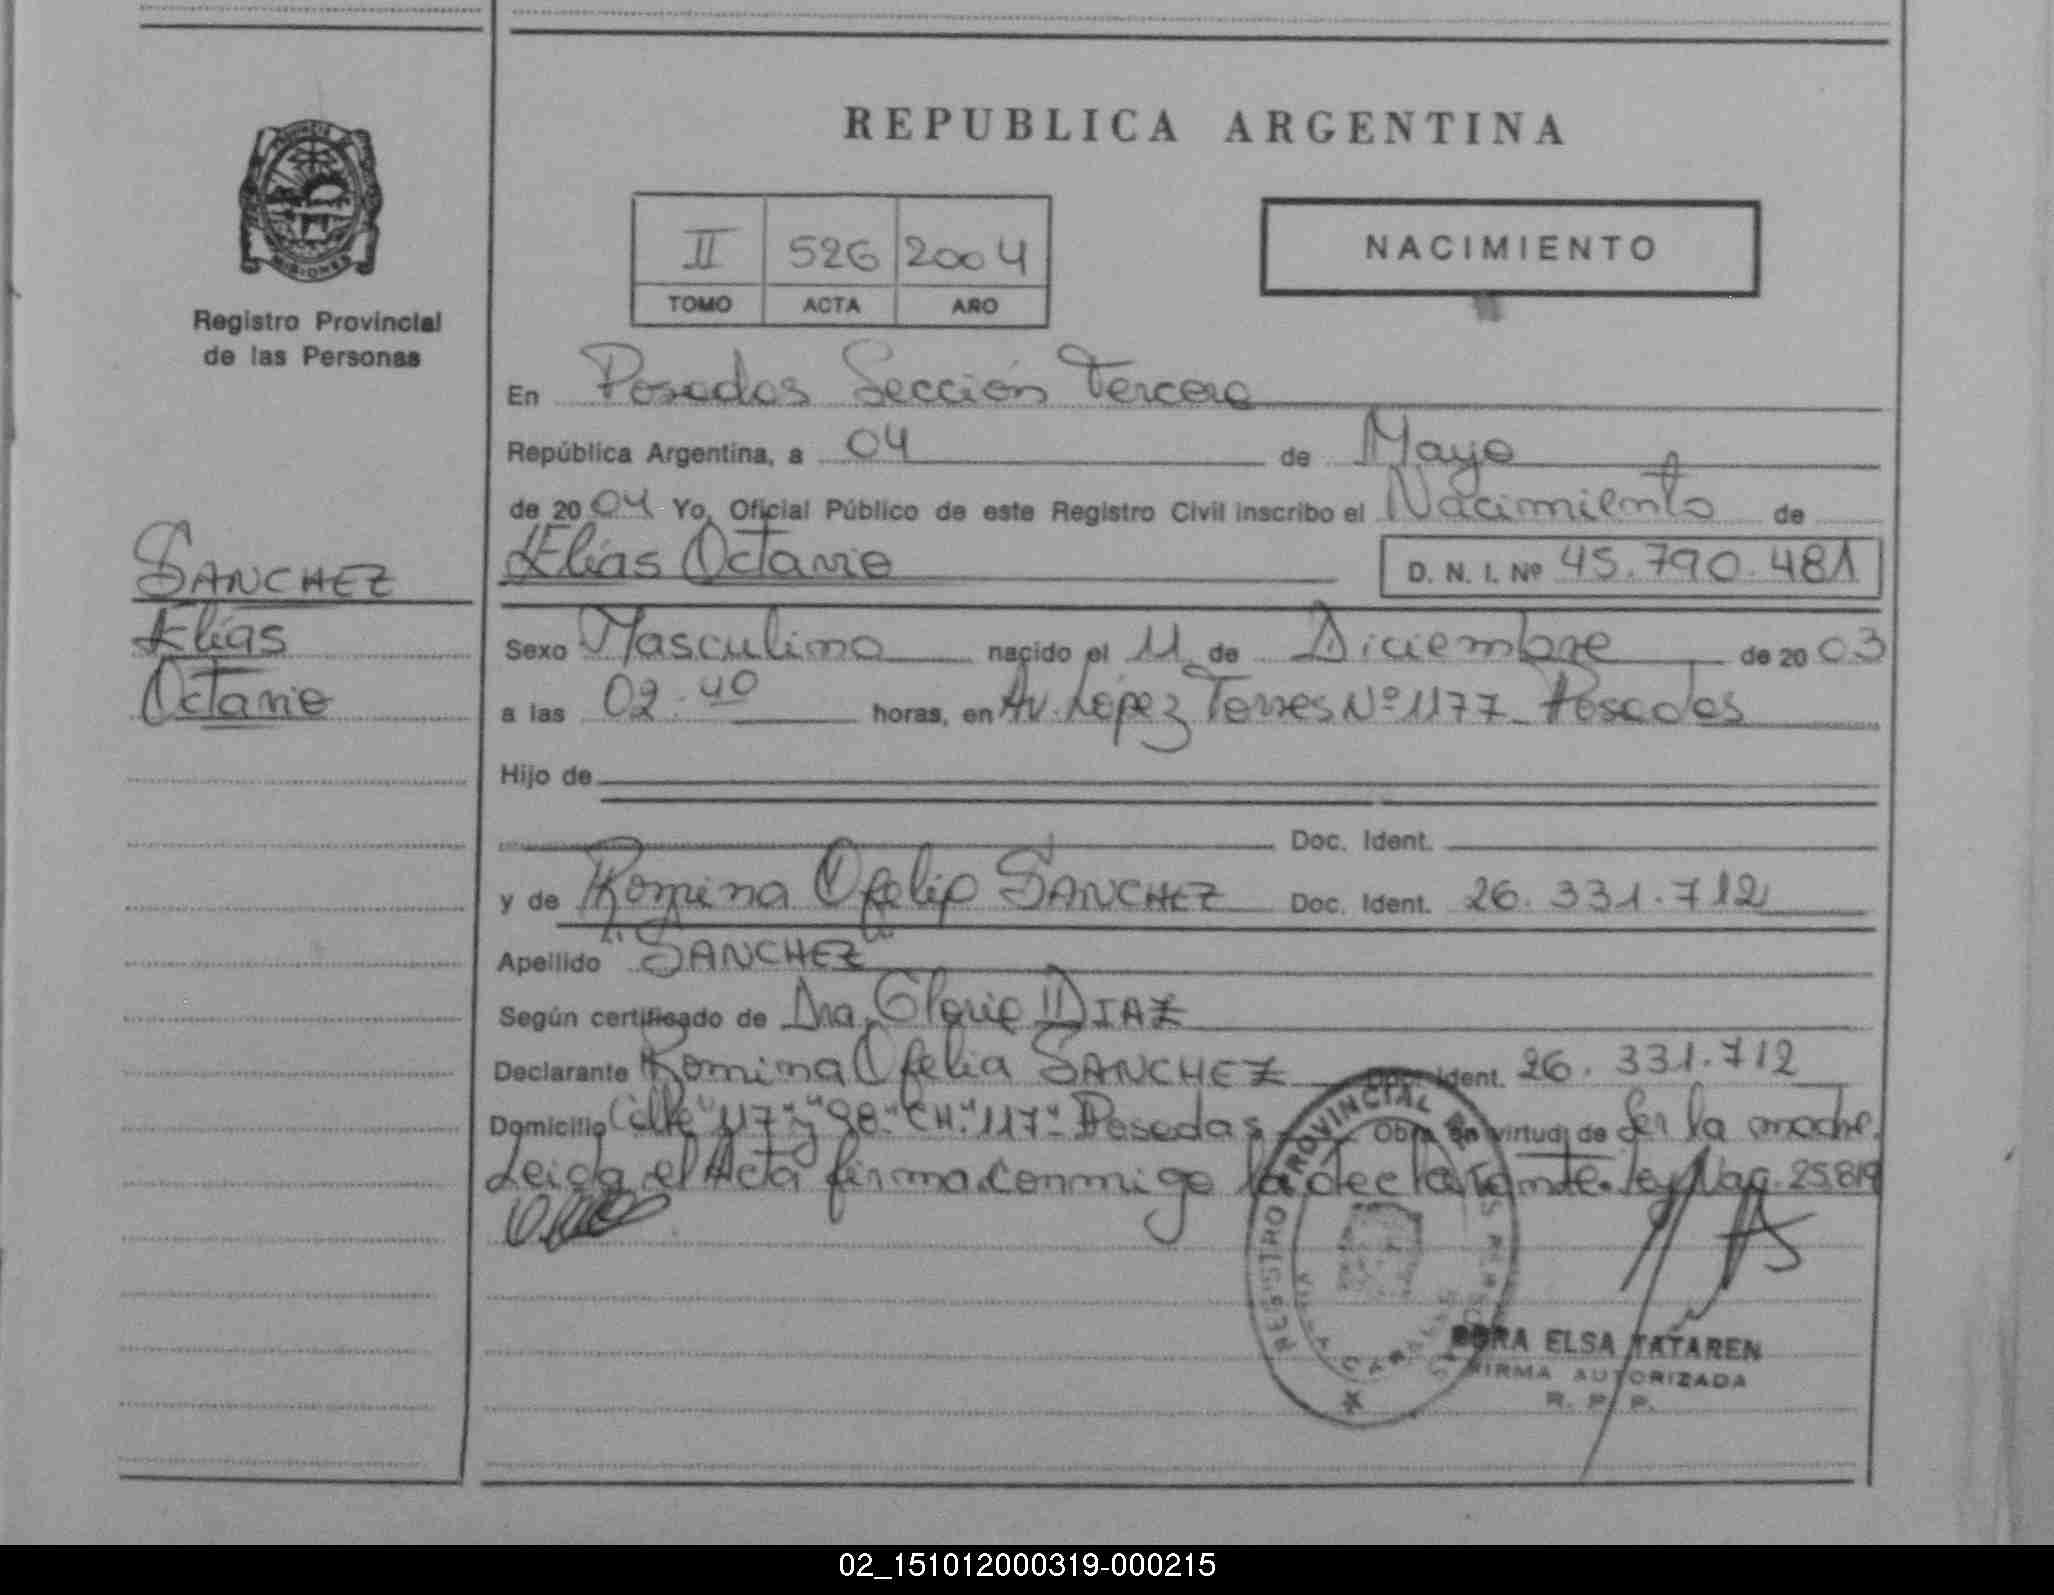 REPUBLICA ARGENTINA
II 526 2004
TOMO ACTA AÑO
NACIMIENTO
MISIONES
Registro Provincial
de las Personas
SANCHEZ
Elías
Octavio
En Posadas Sección Tercera
República Argentina, a 04 de Mayo
de 2004 Yo, Oficial Público de este Registro Civil inscribo el Nacimiento de
Elías Octavio D. N. I. Nº 45.790.481
Sexo Masculino nacido el 11 de Diciembre de 2003
a las 02.40 horas, en Av. López Torres Nº 1177 Posadas
Hijo de
Doc. Ident.
y de Romina Ofelia SANCHEZ Doc. Ident. 26.331.712
Apellido "SANCHEZ"
Según certificado de Dra. Gloria DIAZ
Declarante Romina Ofelia SANCHEZ Doc. Ident. 26.331.712
Domicilio Calle "117" y "98" CH. "117" Posedas Obra en virtud de Ser la madre.
Leída el Acta firma conmigo la declarante. Ley Nac. 25.819
REGISTRO PROVINCIAL DE LAS PERSONAS
DORA ELSA TATAREN
FIRMA AUTORIZADA
R. P. P.
02_151012000319-000215